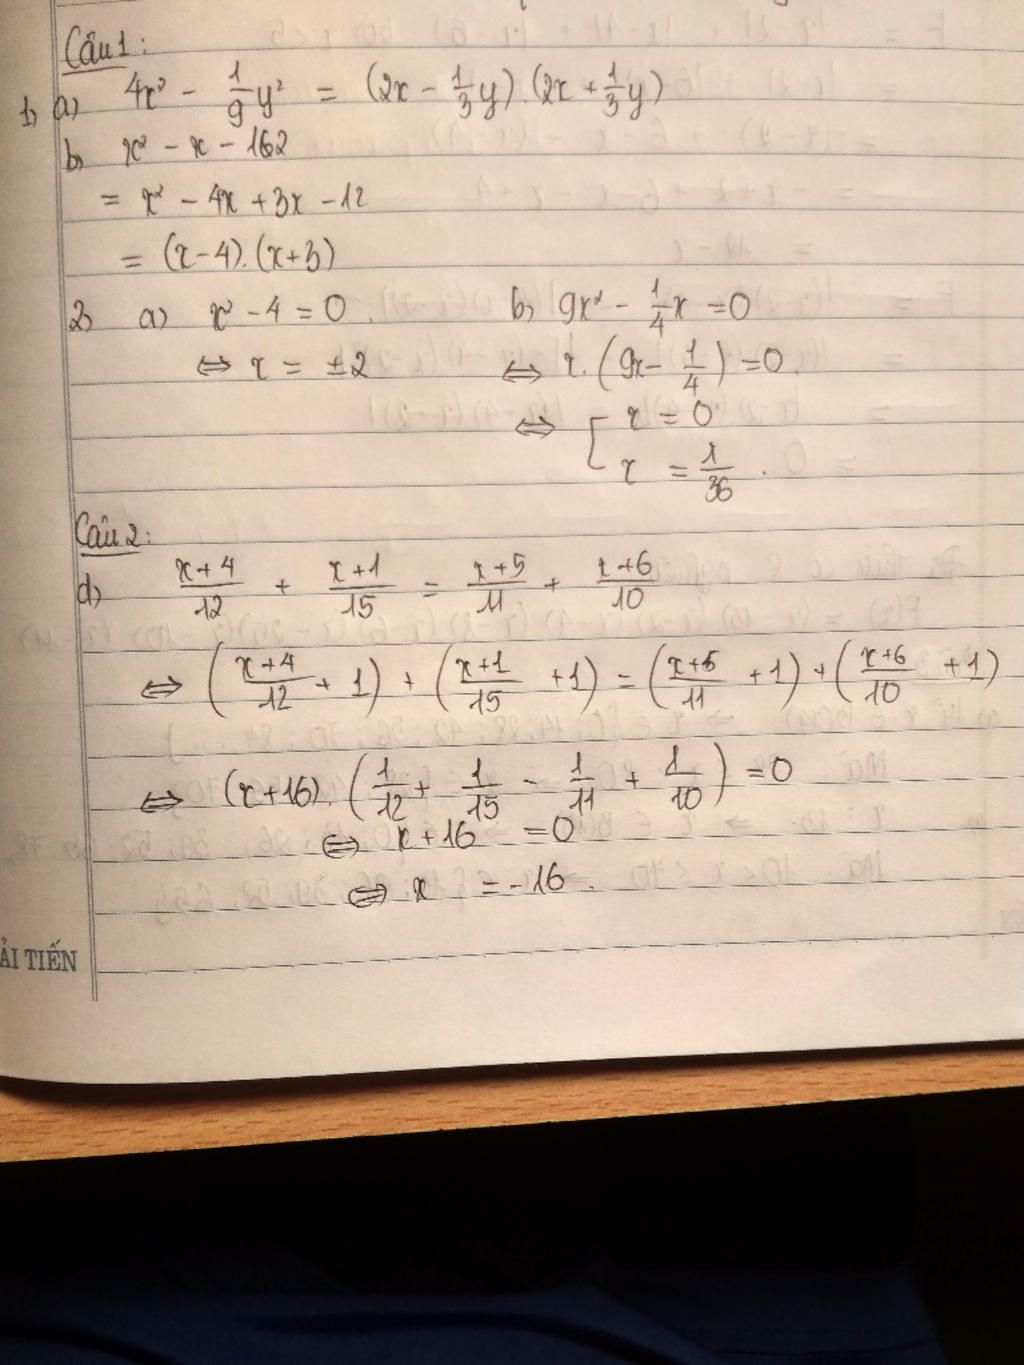 Câu 1:
1, a) 4x² - 1/9 y² = (2x - 1/3 y).(2x + 1/3 y)
b, x² - x - 162
= x² - 4x + 3x - 12
= (x-4).(x+3)
2, a) x² - 4 = 0. b, 9x² - 1/4 x = 0
⇔ x = ±2 ⇔ x.(9x - 1/4) = 0.
⇔ [ x = 0
x = 1/36 .
Câu 2:
d) (x+4)/12 + (x+1)/15 = (x+5)/11 + (x+6)/10
⇔ ((x+4)/12 + 1) + ((x+1)/15 + 1) = ((x+5)/11 + 1) + ((x+6)/10 + 1)
⇔ (x+16).(1/12 + 1/15 - 1/11 + 1/10) = 0
⇔ x+16 = 0
⇔ x = -16.
ẢI TIẾN